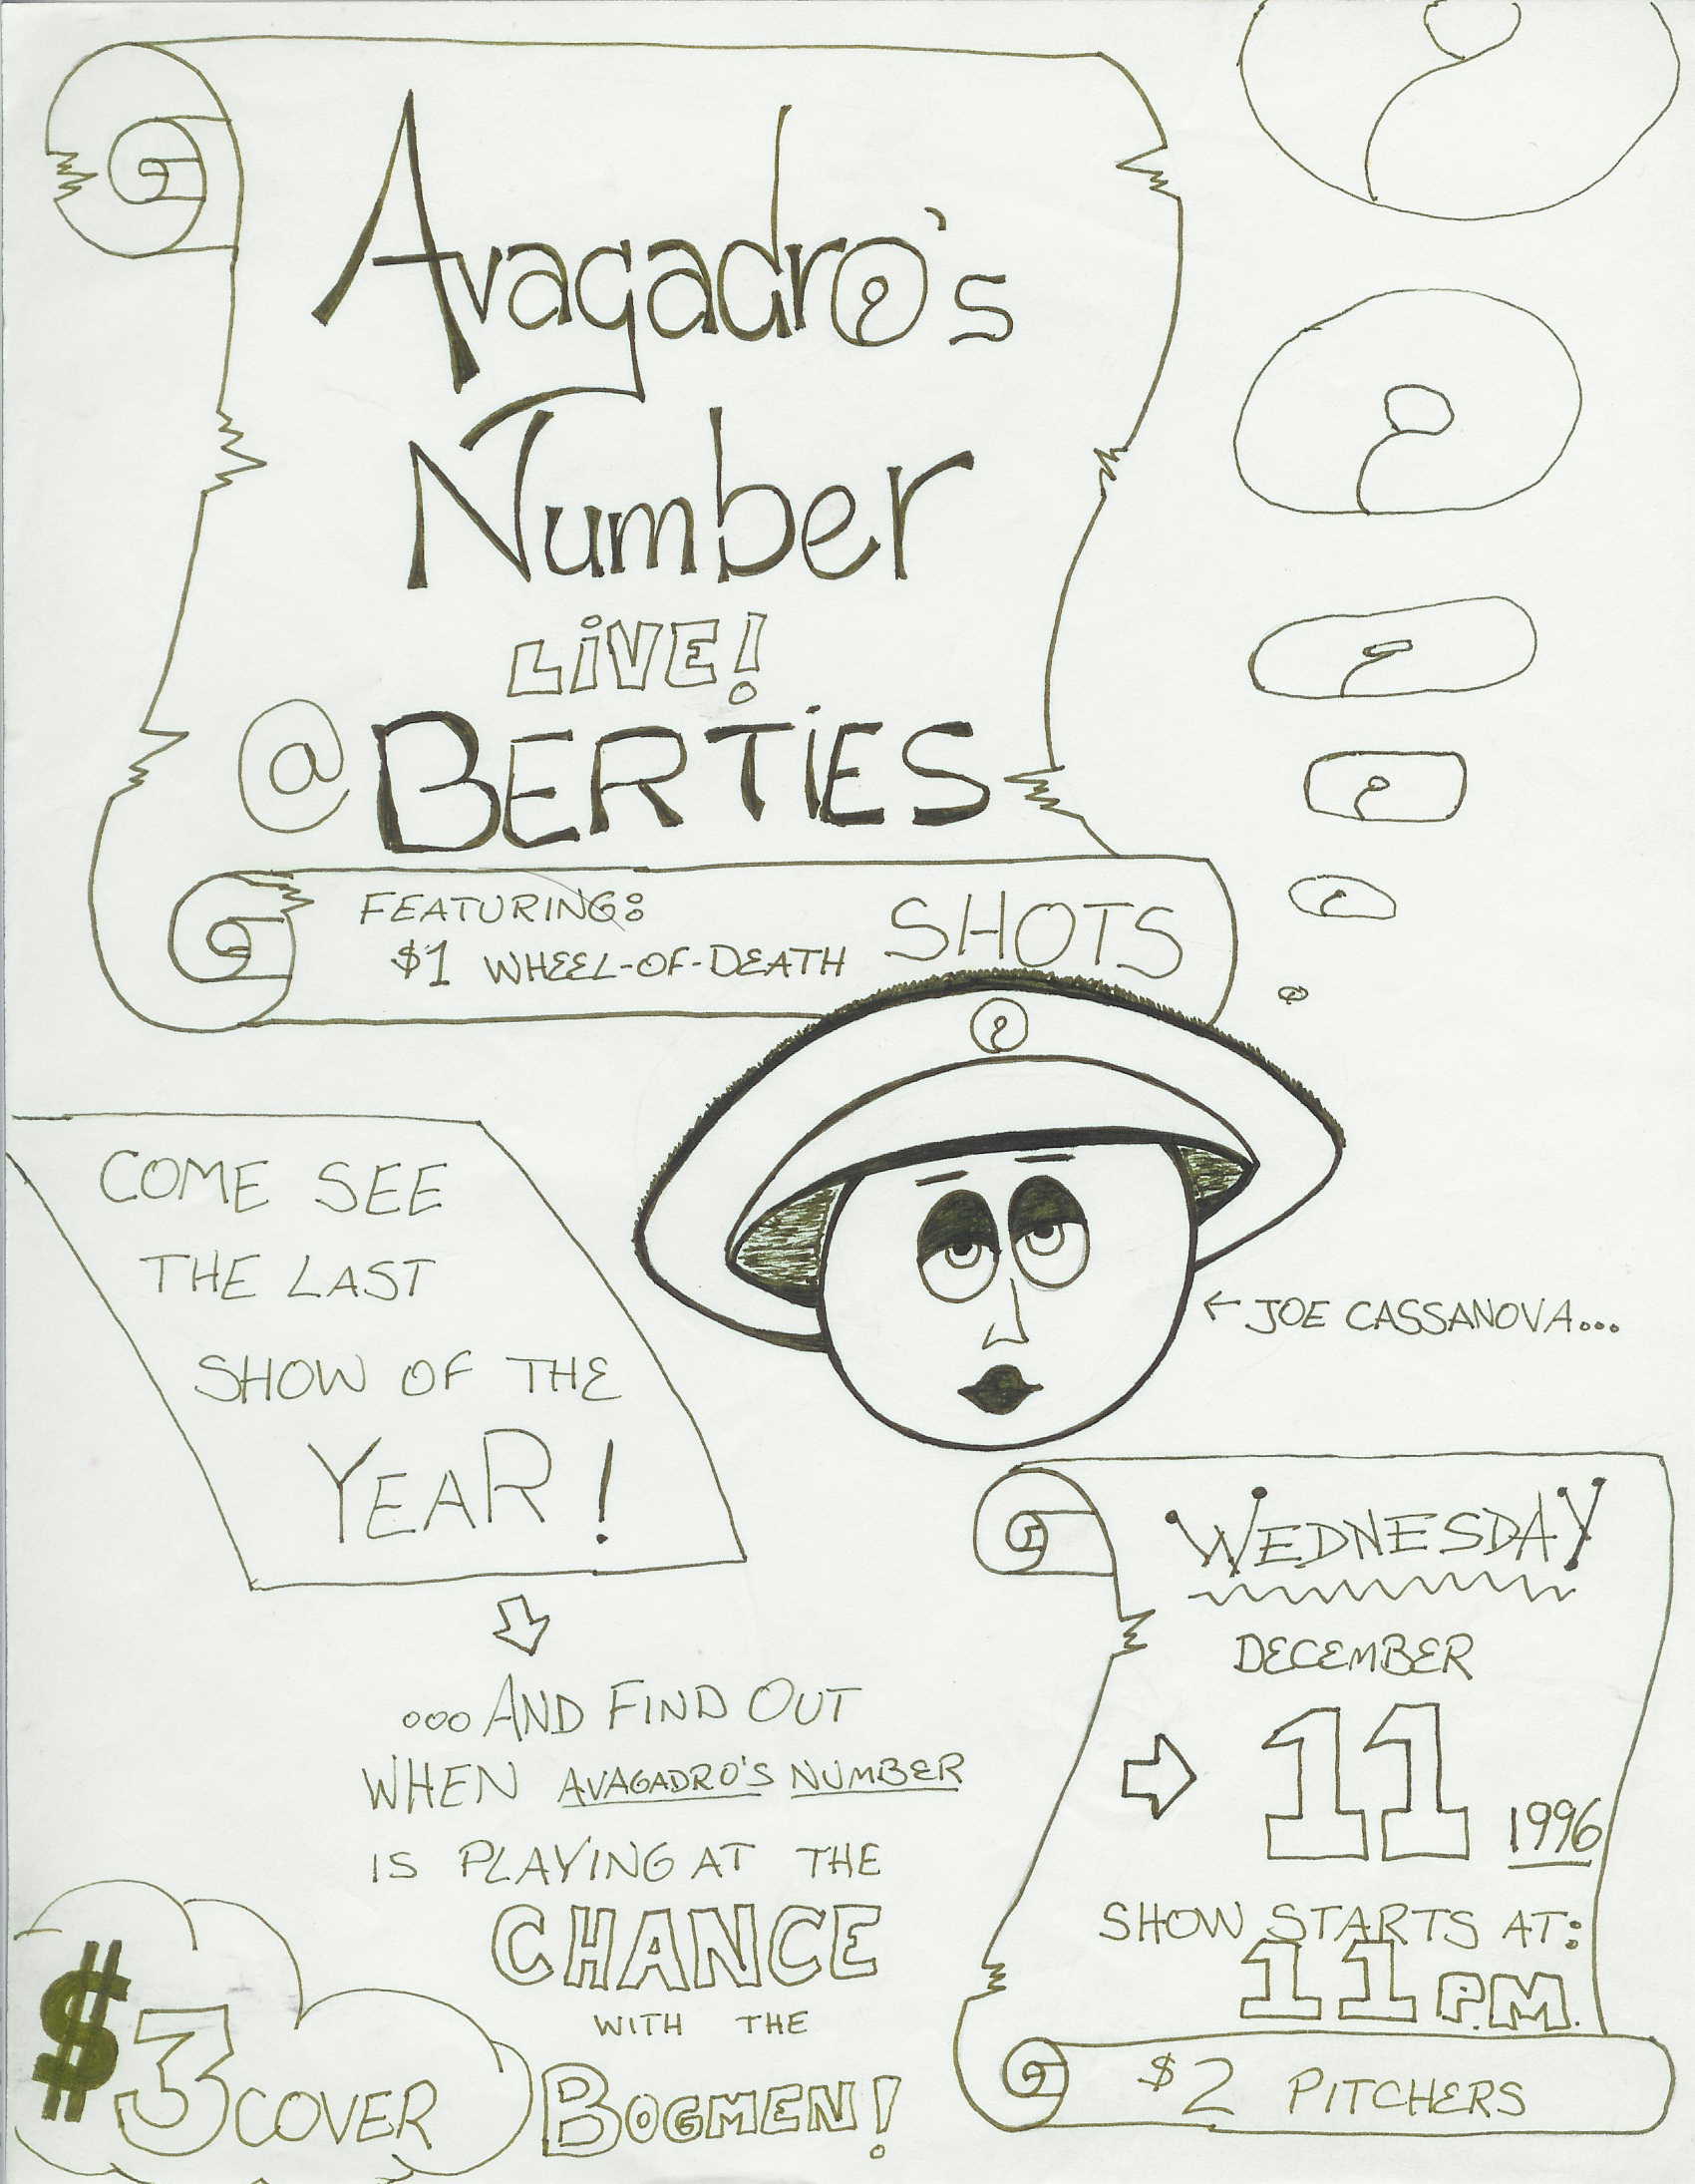 Avagadro's
Number
LiVE!
@ BERTiES
FEATURING:
$1 WHEEL-OF-DEATH SHOTS
COME SEE
THE LAST
SHOW OF THE
YEAR!
← JOE CASSANOVA...
...AND FIND OUT
WHEN AVAGADRO'S NUMBER
IS PLAYING AT THE
CHANCE
WITH THE
BOGMEN!
$3 COVER
WEDNESDAY
DECEMBER
11 1996
SHOW STARTS AT:
11 P.M.
$2 PITCHERS